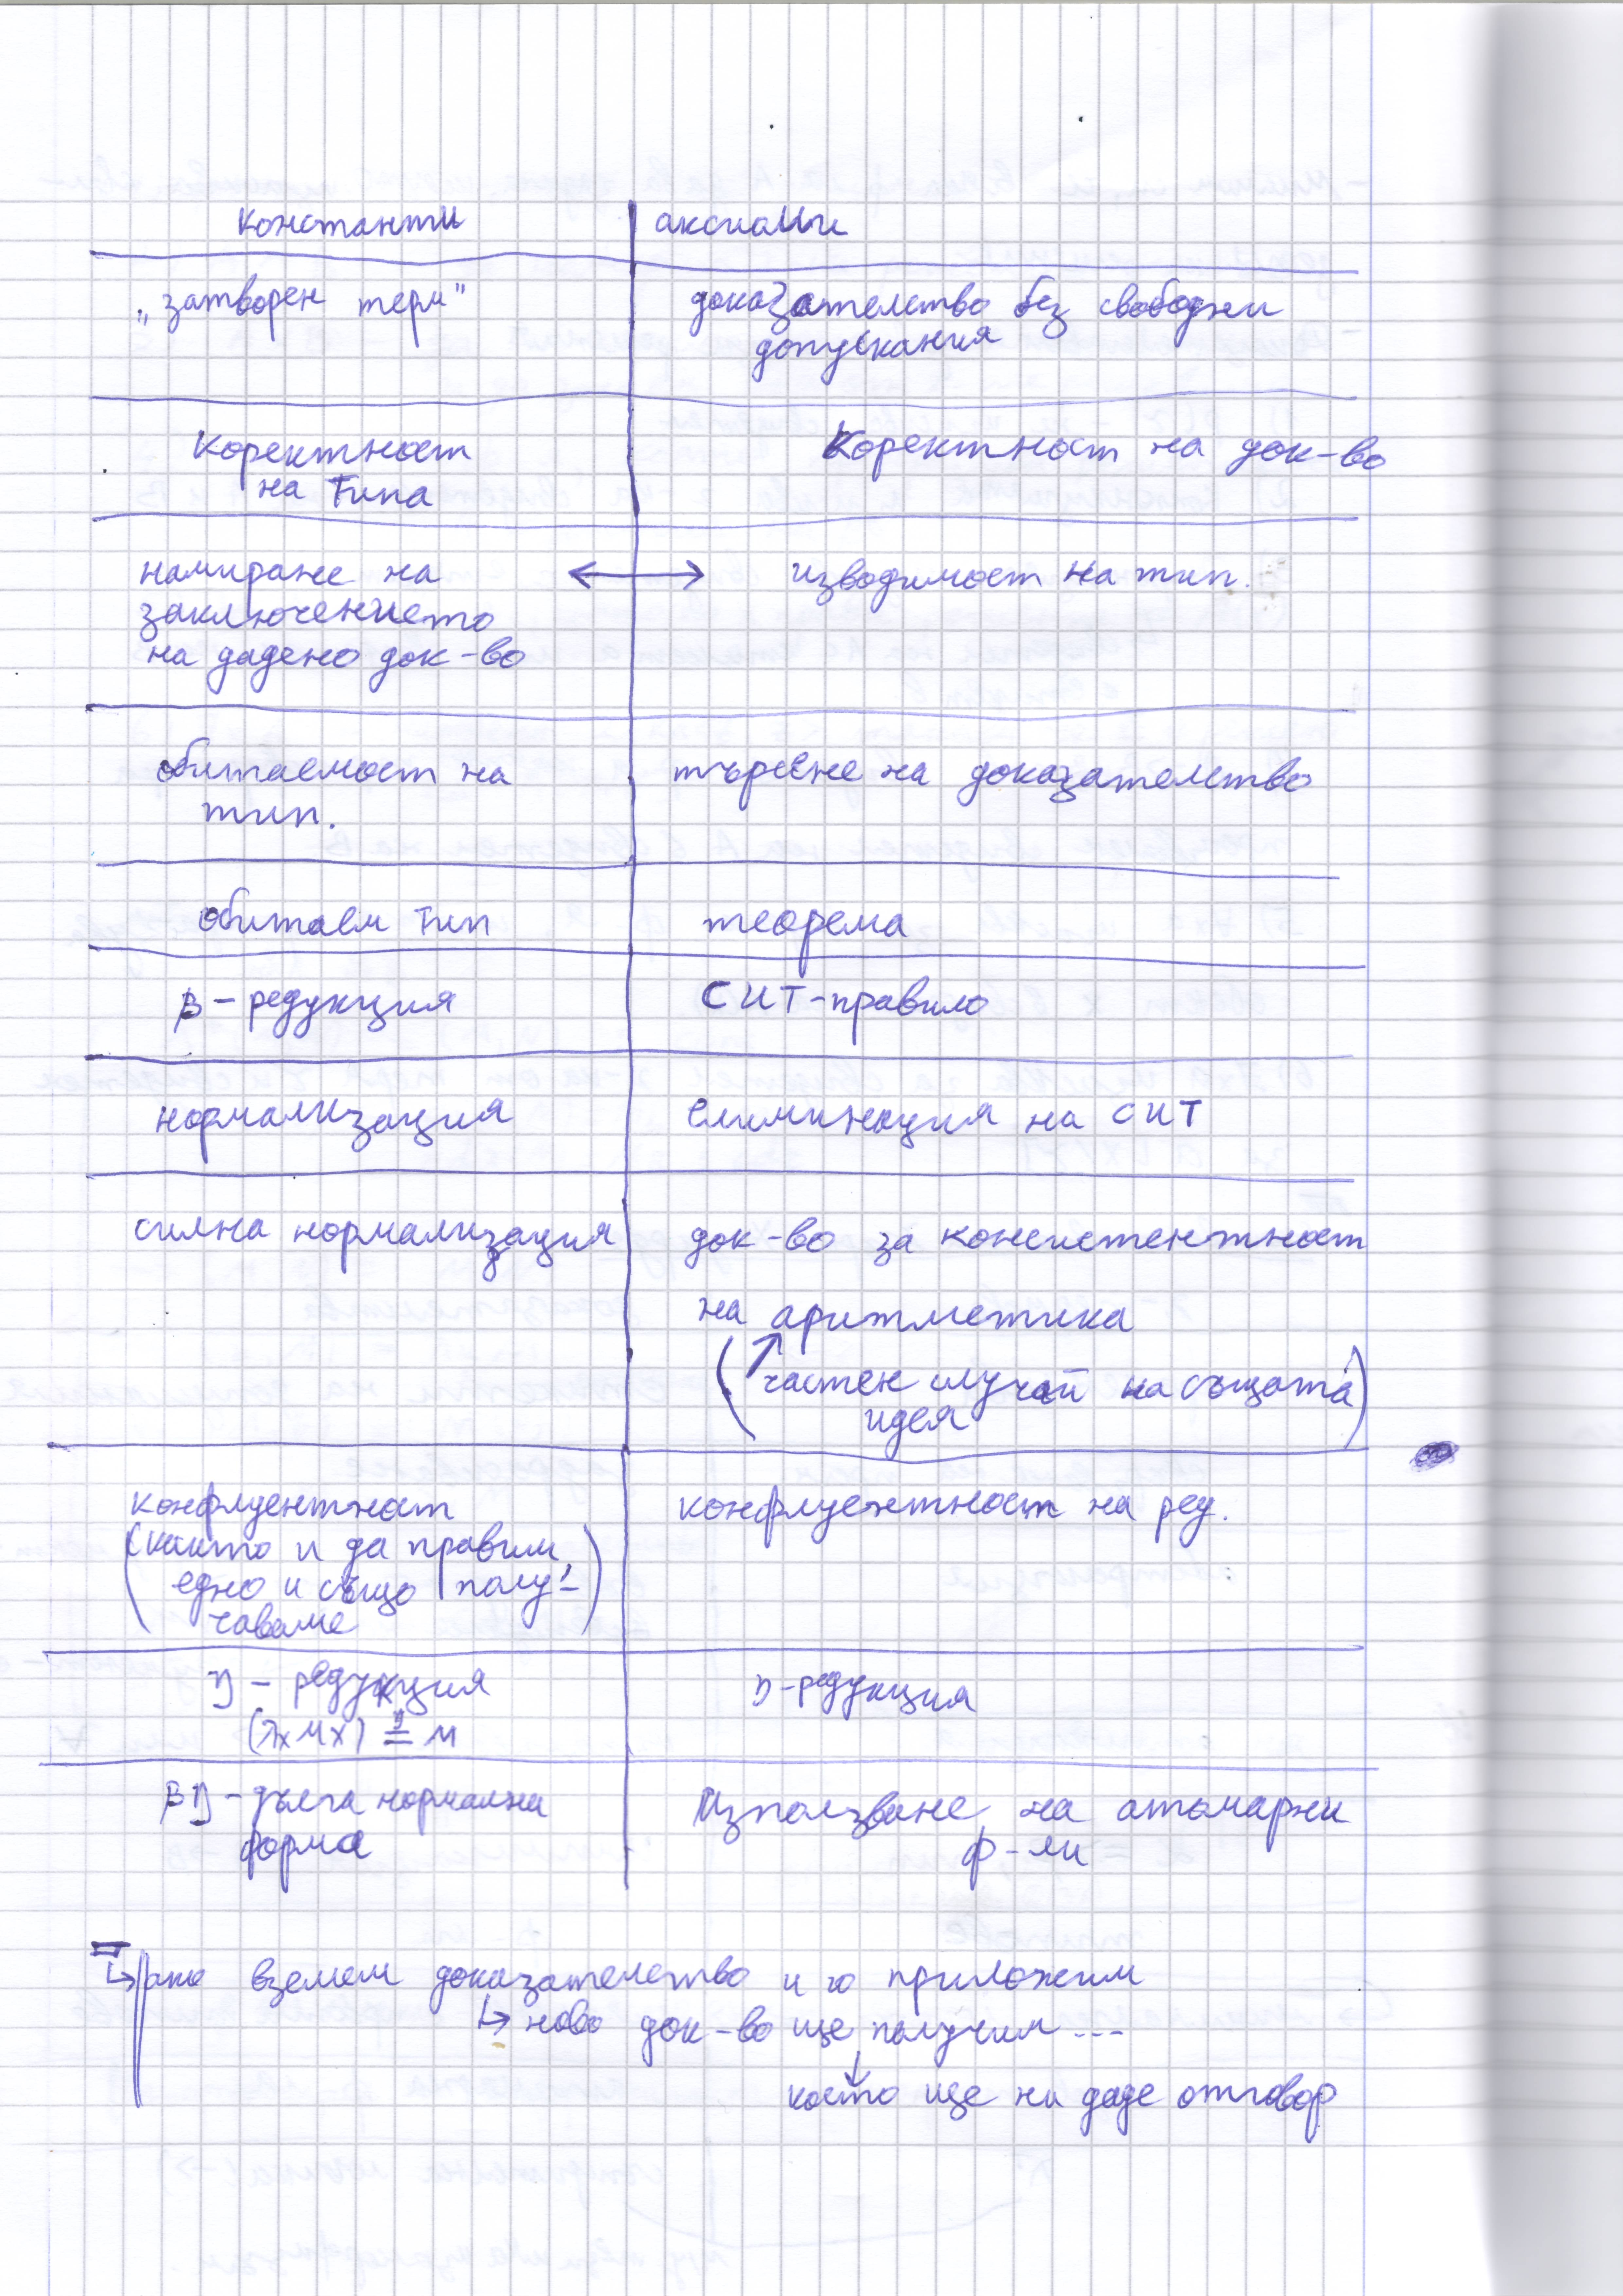 константи | аксиоми
„затворен терм" | доказателство без свободни
допускания
Коректност | Коректност на док-во
на типа
намиране на ↔ изводимост на тип.
заключението
на дадено док-во
обитаемост на | търсене на доказателство
тип.
обитаем тип | теорема
β-редукция | СИТ-правило
нормализация | елиминация на СИТ
силна нормализация | док-во за консистентност
на аритметика
(↗ частен случай на същата
идея)
конфлуентност | конфлуентност на ред.
(както и да правим,
едно и също полу-
чаваме)
η - редукция | η-редукция
(λx Mx) =η M
βη - дълга нормална | Използване на атомарни
форма | ф-ли
↳ ако вземем доказателство и го приложим
↳ ново док-во ще получим ---
↓
което ще ни даде отговор